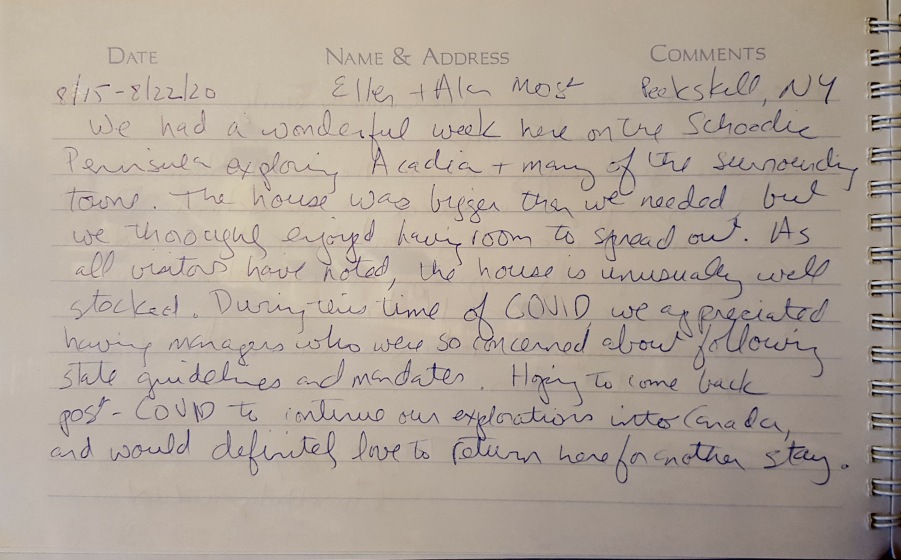 DATE NAME & ADDRESS COMMENTS
8/15-8/22/20 Ellen + Alan Most Peekskill, NY
We had a wonderful week here on the Schoodic
Peninsula exploring Acadia + many of the surrounding
towns. The house was bigger than we needed, but
we thoroughly enjoyed having room to spread out. As
all visitors have noted, the house is unusually well
stocked. During this time of COVID, we appreciated
having managers who were so concerned about following
state guidelines and mandates. Hoping to come back
post-COVID to continue our explorations into Canada,
and would definitely love to return here for another stay.